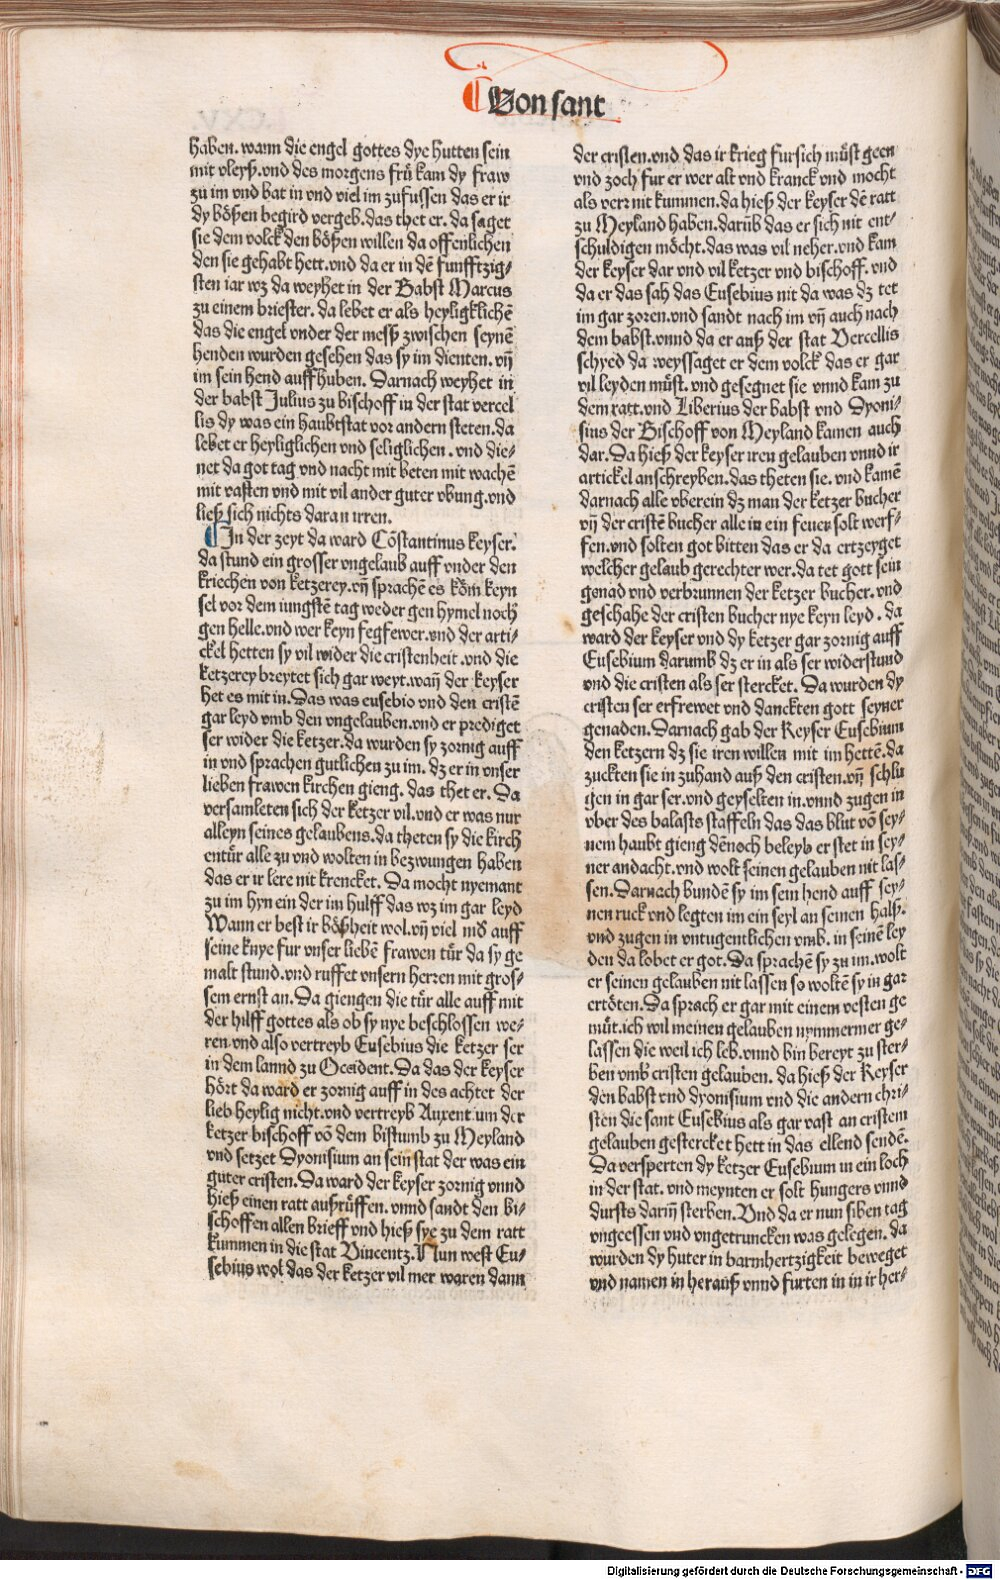 Von sant
haben. wann die engel gottes dye hutten sein
mit vleyß. vnd des morgens frů kam dy fraw
zu im vnd bat in vnd viel im zufussen das er ir
dy bößen begird vergeb. das thet er. da saget
sie dem volck den bößen willen da offenlichen
den sie gehabt hett. vnd da er in dē funfftzig⸗
sten iar wz da weyhet in der Babst Marcus
zu einem briester. da lebet er als heyligklichē
das die engel vnder der meß zwischen seynē
henden wurden gesehen das sy im dienten. vñ
im sein hend auffhuben. Darnach weyhet in
der babst Julius zu bischoff in der stat vercel
lis dy was ein haubtstat vor andern steten. da
lebet er heyliglichen vnd seliglichen. vnd die⸗
net da got tag vnd nacht mit beten mit wachē
mit vasten vnd mit vil ander guter vbung. vnd
ließ sich nichts daran irren.
¶In der zeyt da ward Cōstantinus keyser.
da stund ein grosser vngelaub auff vnder den
kriechen von ketzerey. vñ sprachē es kōm keyn
sel vor dem iungstē tag weder gen hymel noch
gen helle. vnd wer keyn fegfewer. vnd der arti⸗
ckel hetten sy vil wider die cristenheit. vnd die
ketzerey breytet sich gar weyt. wañ der keyser
het es mit in. Das was eusebio vnd den cristē
gar leyd vmb den vngelauben. vnd er prediget
ser wider die ketzer. da wurden sy zornig auff
in vnd sprachen gutlichen zu im. dz er in vnser
lieben frawen kirchen gieng. das thet er. Da
versamleten sich der ketzer vil. vnd er was nur
alleyn seines gelaubens. da theten sy die kirch
entůr alle zu vnd wolten in bezwungen haben
das er ir lere nit krencket. Da mocht nyemant
zu im hyn ein der im hulff das wz im gar leyd
Wann er west ir bößheit wol. vñ viel nid auff
seine knye fur vnser liebē frawen tůr da sy ge
malt stund. vnd ruffet vnsern herren mit gros⸗
sem ernst an. Da giengen die tůr alle auff mit
der hilff gottes als ob sy nye beschlossen we⸗
ren. vnd also vertreyb Eusebius die ketzer ser
in dem lannd zu Occident. Da das der keyser
hört da ward er zornig auff in des achtet der
lieb heylig nicht. vnd vertreyb Auxentium der
ketzer bischoff vō dem bistumb zu Meyland
vnd setzet Dyonisium an sein stat der was ein
guter cristen. Da ward der keyser zornig vnnd
hieß einen ratt außrůffen. vnnd sandt den bi⸗
schoffen allen brieff vnd hieß sye zu dem ratt
kummen in die stat Vincentz. Nun west Eu⸗
sebius wol das der ketzer vil mer waren dann
der cristen. vnd das ir krieg fursich můst geen
vnd zoch fur er wer alt vnd kranck vnd mocht
als verr nit kummen. da hieß der keyser dē ratt
zu Meyland haben. darūb das er sich nit ent⸗
schuldigen möcht. das was vil neher. vnd kam
der keyser dar vnd vil ketzer vnd bischoff. vnd
da er das sah das Eusebius nit da was dz tet
im gar zoren. vnd sandt nach im vñ auch nach
dem babst. vnnd da er auß der stat Vercellis
schyed da weyssaget er dem volck das er gar
vil leyden můst. vnd gesegnet sie vnnd kam zu
dem ratt. vnd Liberius der babst vnd Dyoni⸗
sius der Bischoff von Meyland kamen auch
dar. Da hieß der keyser iren gelauben vnnd ir
artickel anschreyben. das theten sie. vnd kamē
darnach alle vberein dz man der ketzer bucher
vñ der cristē bucher alle in ein feuer solt werf⸗
fen. vnd solten got bitten das er da ertzeyget
welcher gelaub gerechter wer. da tet gott sein
genad vnd verbrunnen der ketzer bucher. vnd
geschahe der cristen bucher nye keyn leyd. da
ward der keyser vnd dy ketzer gar zornig auff
Eusebium darumb dz er in als ser widerstund
vnd die cristen als ser stercket. Da wurden dy
cristen ser erfrewet vnd danckten gott seyner
genaden. Darnach gab der Keyser Eusebium
den ketzern dz sie iren willen mit im hettē. da
zuckten sie in zuhand auß den cristen. vñ schlu
gen in gar ser. vnd geyselten in. vnnd zugen in
vber des balasts staffeln das das blut vō sey⸗
nem haubt gieng dēnoch beleyb er stet in sey⸗
ner andacht. vnd wolt seinen gelauben nit las⸗
sen. Darnach bundē sy im sein hend auff sey⸗
nen ruck vnd legten im ein seyl an seinen halß.
vnd zugen in vntugentlichen vmb. in seinē ley
den da lobet er got. Da sprachē sy zu im. wolt
er seinen gelauben nit lassen so woltē sy in gar
ertöten. Da sprach er gar mit einem vesten ge
můt. ich wil meinen gelauben nymmermer ge⸗
lassen die weil ich leb. vnnd bin bereyt zu ster⸗
ben vmb cristen gelauben. da hieß der Keyser
den babst vnd dyonisium vnd die andern chri⸗
sten die sant Eusebius als gar vast an cristem
gelauben gestercket hett in das ellend sendē.
Da versperten dy ketzer Eusebium in ein loch
in der stat. vnd meynten er solt hungers vnnd
dursts dariñ sterben. Vnd da er nun siben tag
vngeessen vnd vngetruncken was gelegen. da
wurden dy huter in barmhertzigkeit beweget
vnd namen in herauß vnnd furten in in ir her⸗
Digitalisierung gefördert durch die Deutsche Forschungsgemeinschaft - DFG